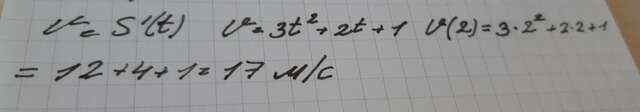 v = S'(t) v = 3t² + 2t + 1 v(2) = 3·2² + 2·2 + 1
= 12 + 4 + 1 = 17 м/с